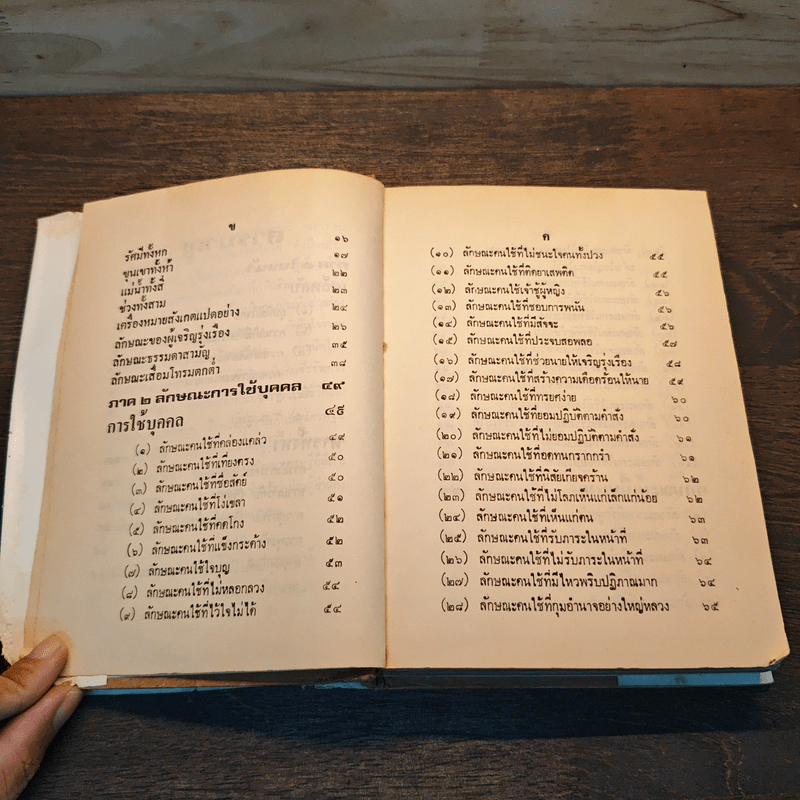 ข
รัศมีทั้งหก ๑๖
ขุนเขาทั้งห้า ๑๗
แม่น้ำทั้งสี่ ๒๒
ช่วงทั้งสาม ๒๓
เครื่องหมายสังเกตแปดอย่าง ๒๔
ลักษณะของผู้เจริญรุ่งเรือง ๒๖
ลักษณะธรรมดาสามัญ ๓๕
ลักษณะเสื่อมโทรมตกต่ำ ๓๘
ภาค ๒ ลักษณะการใช้บุคคล ๔๙
การใช้บุคคล ๔๕
(๑) ลักษณะคนใช้ที่คล่องแคล่ว ๔๙
(๒) ลักษณะคนใช้ที่เที่ยงตรง ๕๐
(๓) ลักษณะคนใช้ที่ซื่อสัตย์ ๕๐
(๔) ลักษณะคนใช้ที่โง่เขลา ๕๑
(๕) ลักษณะคนใช้ที่คดโกง ๕๒
(๖) ลักษณะคนใช้ที่แข็งกระด้าง ๕๒
(๗) ลักษณะคนใช้ใจบุญ ๕๓
(๘) ลักษณะคนใช้ที่ไม่หลอกลวง ๕๔
(๙) ลักษณะคนใช้ที่ไว้ใจไม่ได้ ๕๔
ค
(๑๐) ลักษณะคนใช้ที่ไม่ชนะใจคนทั้งปวง ๕๕
(๑๑) ลักษณะคนใช้ที่ติดยาเสพติด ๕๕
(๑๒) ลักษณะคนใช้เจ้าชู้ผู้หญิง ๕๖
(๑๓) ลักษณะคนใช้ที่ชอบการพนัน ๕๖
(๑๔) ลักษณะคนใช้ที่มีสัจจะ ๕๖
(๑๕) ลักษณะคนใช้ที่ประจบสอพลอ ๕๗
(๑๖) ลักษณะคนใช้ที่ช่วยนายให้เจริญรุ่งเรือง ๕๘
(๑๗) ลักษณะคนใช้ที่สร้างความเดือดร้อนให้นาย ๕๙
(๑๘) ลักษณะคนใช้ที่ทรยศง่าย ๖๐
(๑๙) ลักษณะคนใช้ที่ยอมปฏิบัติตามคำสั่ง ๖๐
(๒๐) ลักษณะคนใช้ที่ไม่ยอมปฏิบัติตามคำสั่ง ๖๑
(๒๑) ลักษณะคนใช้ที่อดทนกรากกรำ ๖๑
(๒๒) ลักษณะคนใช้ที่นิสัยเกียจคร้าน ๖๒
(๒๓) ลักษณะคนใช้ที่ไม่โลภเห็นแก่เล็กแก่น้อย ๖๒
(๒๔) ลักษณะคนใช้ที่เห็นแก่ตน ๖๓
(๒๕) ลักษณะคนใช้ที่รับภาระในหน้าที่ ๖๓
(๒๖) ลักษณะคนใช้ที่ไม่รับภาระในหน้าที่ ๖๔
(๒๗) ลักษณะคนใช้ที่มีไหวพริบปฏิภาณมาก ๖๔
(๒๘) ลักษณะคนใช้ที่กุมอำนาจอย่างใหญ่หลวง ๖๕